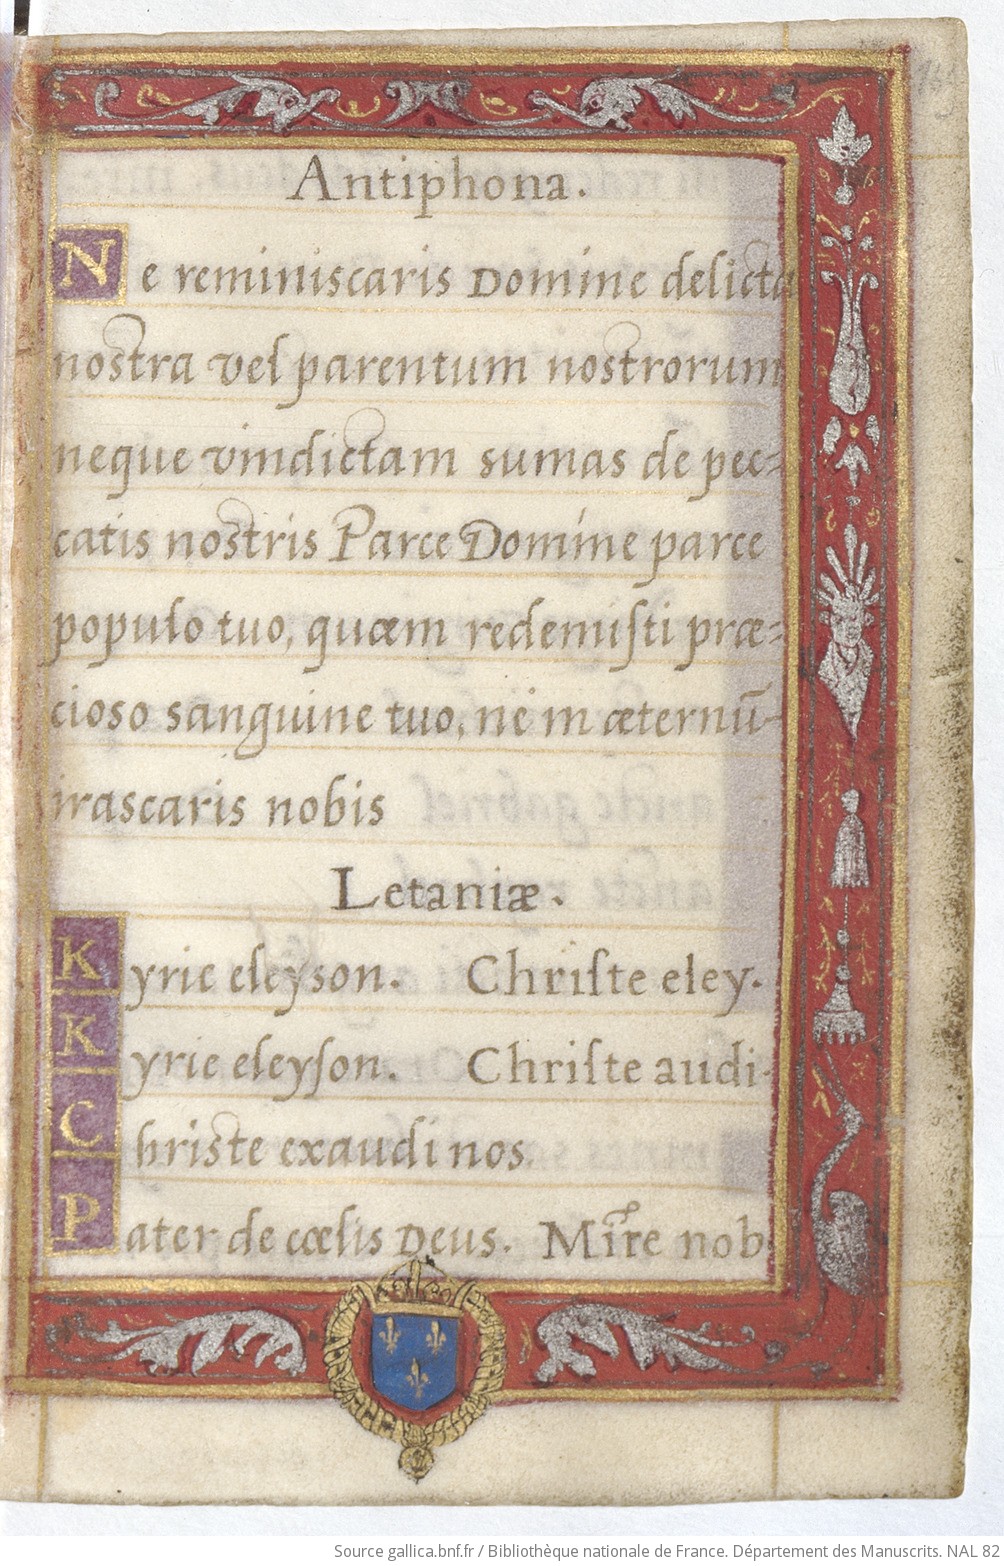 Antiphona.
Ne reminiscaris Domine delicta
nostra vel parentum nostrorum
neque vindictam sumas de pec=
catis nostris Parce Domine parce
populo tuo, quæm redemiſti præ=
cioso sanguine tuo, ne in æternū-
irascaris nobis
Letaniæ.
Kyrie eleyson. Chriſte eley.
Kyrie eleyſon. Chriſte audi-
Christe exaudi nos.
Pater de cœlis Deus. Mĩre nob
Source gallica.bnf.fr / Bibliothèque nationale de France. Département des Manuscrits. NAL 82